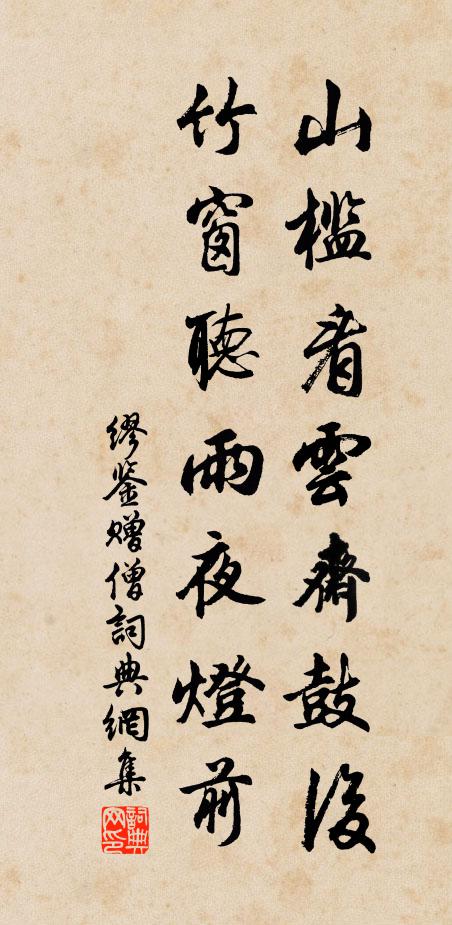 山檻看雲齋鼓後
竹窗聽雨夜燈前
繆鉴贈僧詞典網集
詞典网印